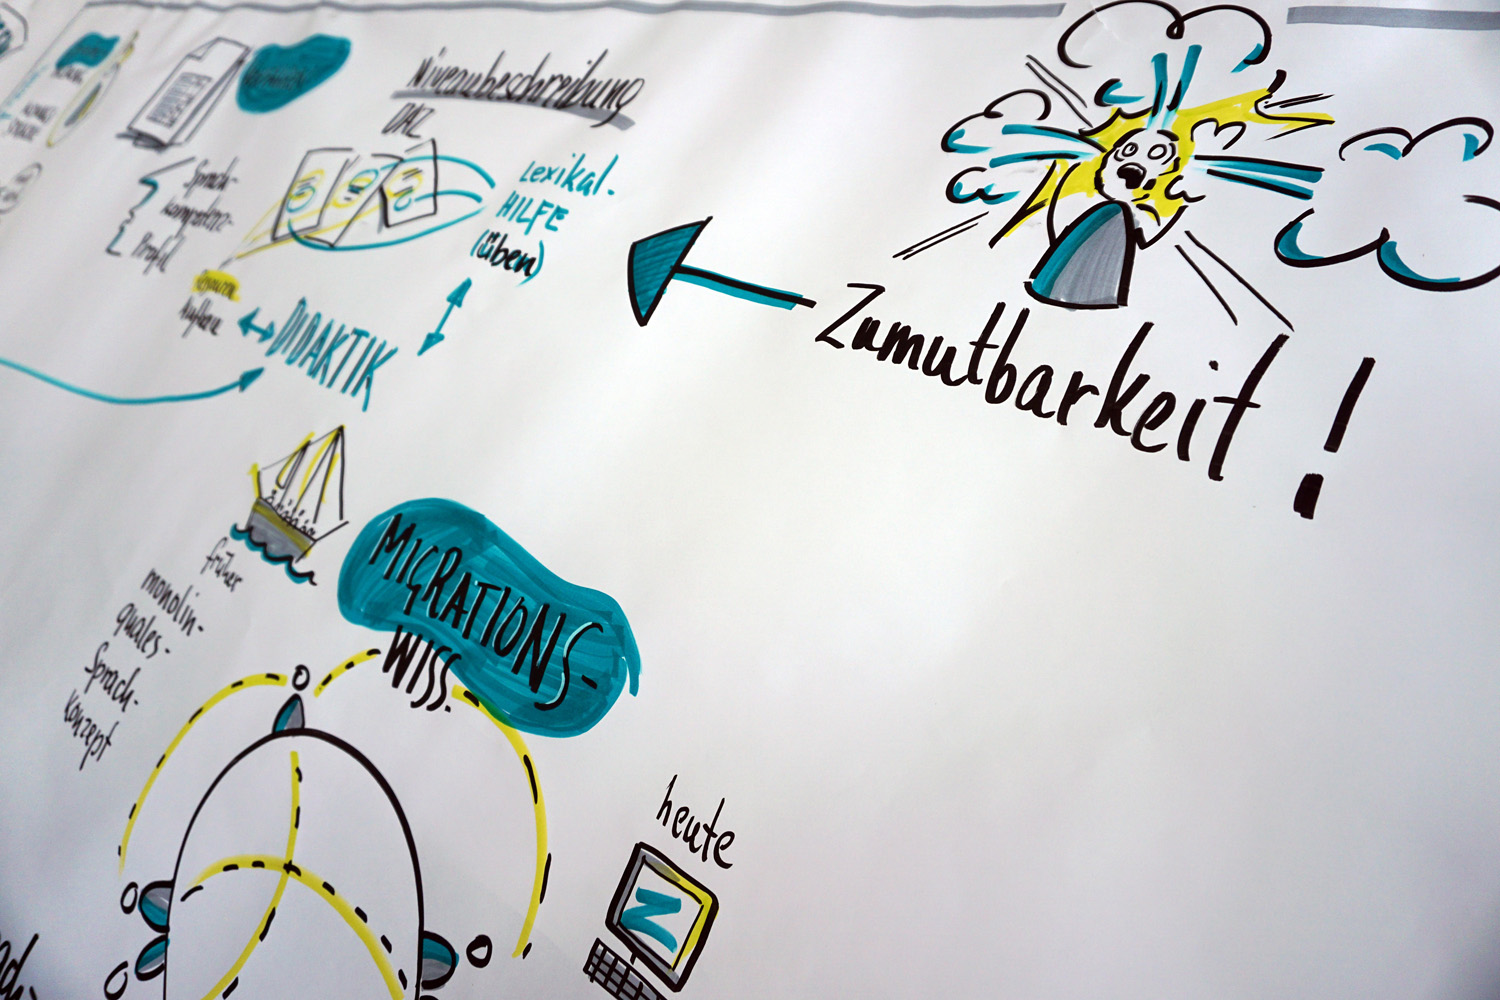 Niveaubeschreibung
DAZ
Sprach-
kompetenz-
Profil
Lexikal.
HILFE
(üben)
DIDAKTIK
Zumutbarkeit!
früher
monolin-
quales-
Sprach-
konzept
MIGRATIONS-
WISS.
heute